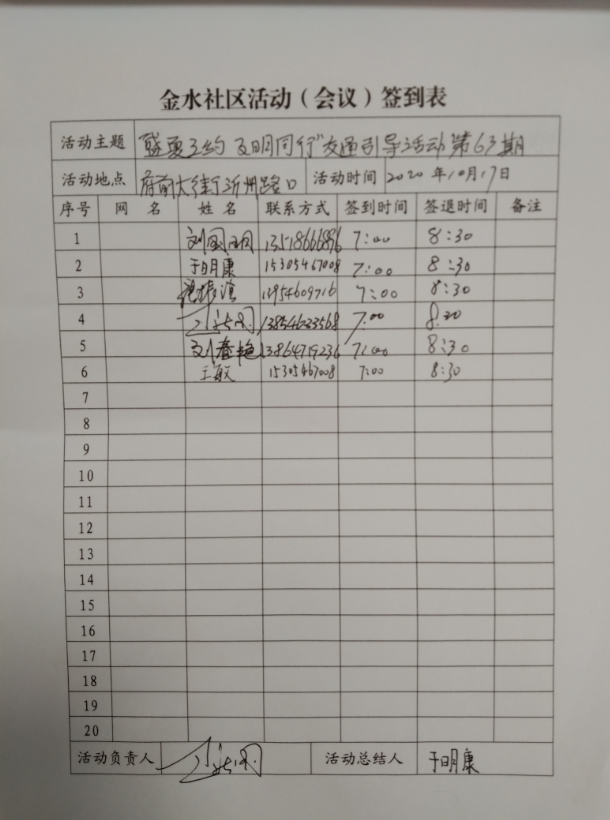 金水社区活动（会议）签到表
活动主题 盛夏之约 文明同行"交通引导活动第63期
活动地点 府前大街沂州路口 活动时间 2020年10月17日
序号 网名 姓名 联系方式 签到时间 签退时间 备注
1 13518666896 7:00 8:30
2 于明康 15305467008 7:00 8:30
3 7:00 8:30
4 13854623568 7:00 8:30
5 刘春艳 13864719236 7:00 8:30
6 王敏 15305467008 7:00 8:30
7
8
9
10
11
12
13
14
15
16
17
18
19
20
活动负责人 活动总结人 于明康